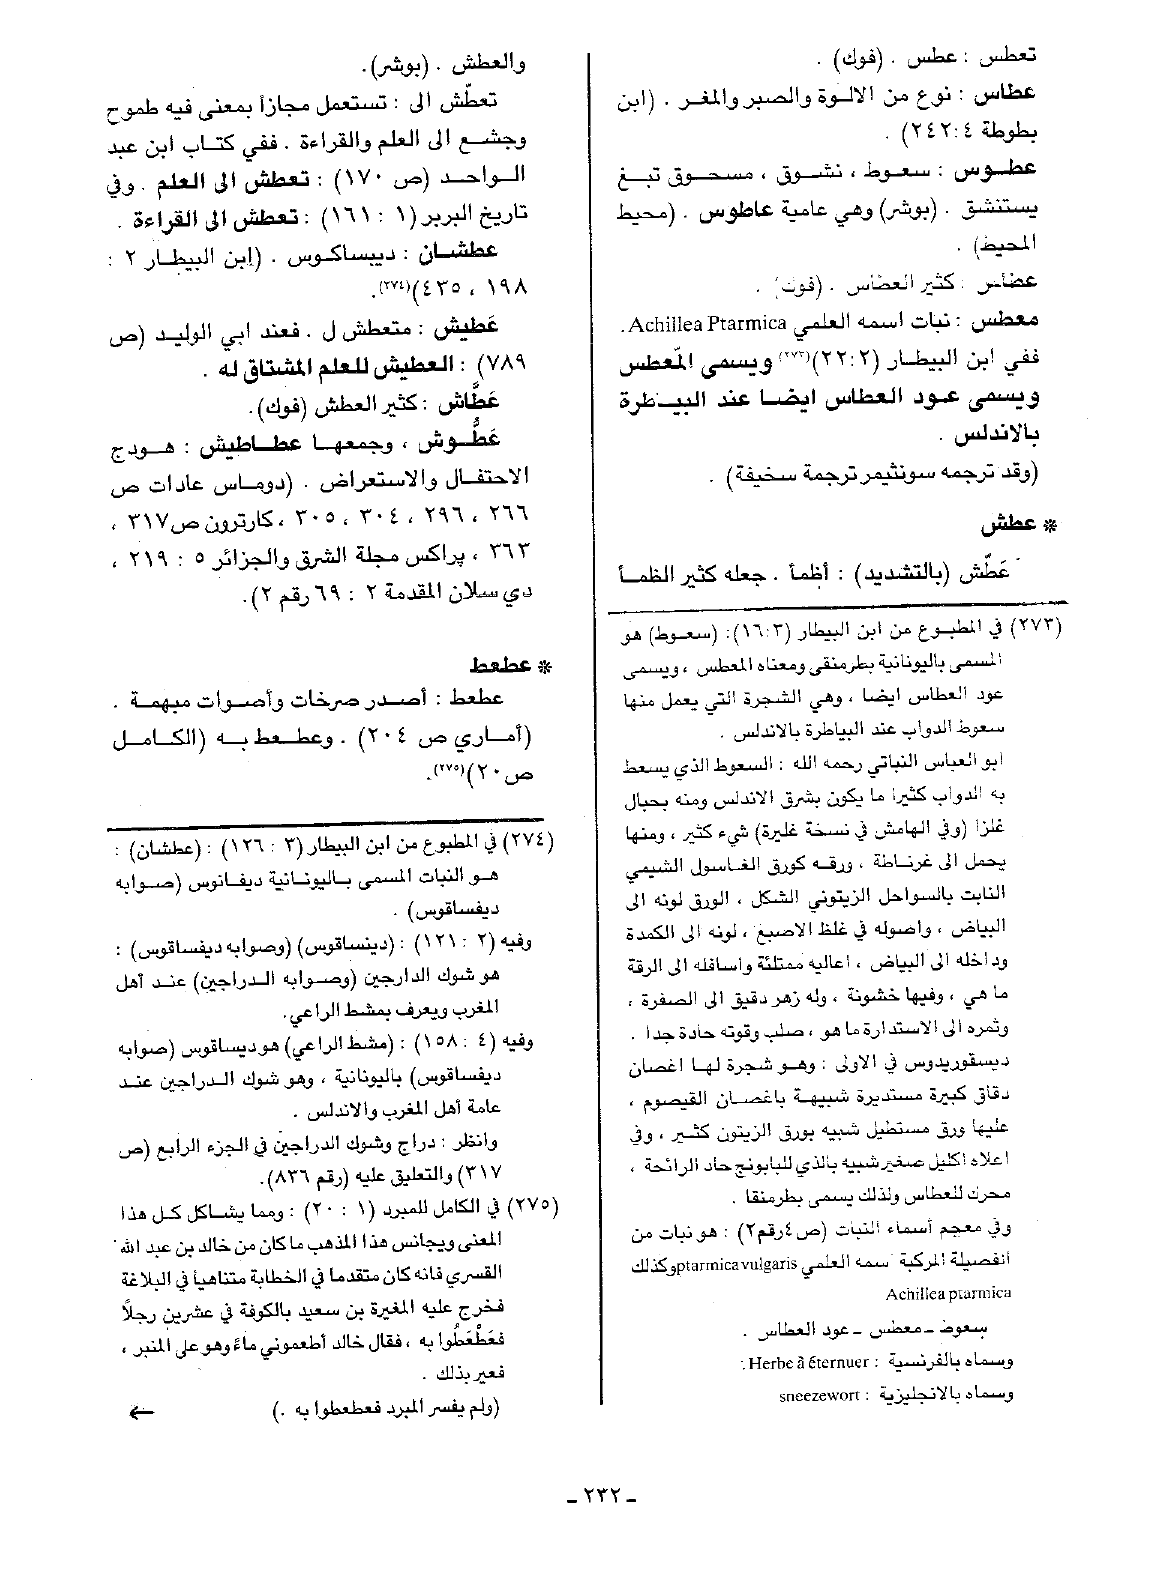 تعطس : عطس . (فوك) .
عطاس : نوع من الالوة والصبر والمغر . (ابن
بطوطة ٤:٢٤٢) .
عطوس : سعوط ، نشوق ، مسحوق تبغ
يستنشق . (بوشر) وهي عامية عاطوس . (محيط
المحيط) .
عطاس : كثير العطاس . (فوك) .
معطس : نبات اسمه العلمي Achillea Ptarmica.
ففي ابن البيطار (٢٢:٢)(٢٧٣) ويسمى المعطس
ويسمى عود العطاس ايضا عند البيطرة
بالاندلس .
(وقد ترجمه سونثيمر ترجمة سخيفة) .
* عطش
عَطّش (بالتشديد) : أظمأ . جعله كثير الظمأ
(٢٧٣) في المطبوع من ابن البيطار (١٦:٣): (سعوط) هو
المسمى باليونانية بطرمنقى ومعناه المعطس ، ويسمى
عود العطاس ايضا ، وهي الشجرة التي يعمل منها
سعوط الدواب عند البياطرة بالاندلس .
ابو العباس النباتي رحمه الله : السعوط الذي يسعط
به الدواب كثيرا ما يكون بشرق الاندلس ومنه بجبال
غلزا (وفي الهامش في نسخة غليرة) شيء كثير ، ومنها
يحمل الى غرناطة ، ورقه كورق الغاسول الشيمي
النابت بالسواحل الزيتوني الشكل ، الورق لونه الى
البياض ، واصوله في غلظ الاصبع ، لونه الى الكمدة
وداخله الى البياض ، اعاليه ممتلئة واسافله الى الرقة
ما هي ، وفيها خشونة ، وله زهر دقيق الى الصفرة ،
وثمره الى الاستدارة ما هو ، صلب وقوته حادة جدا .
ديسقوريدوس في الاولى : وهو شجرة لها اغصان
دقاق كبيرة مستديرة شبيهة باغصان القيصوم ،
عليها ورق مستطيل شبيه بورق الزيتون كثير ، وفي
اعلاه اكليل صغير شبيه بالذي للبابونج حاد الرائحة ،
محرك للعطاس ولذلك يسمى بطرمنقا .
وفي معجم أسماء النبات (ص ٤ رقم ٢) : هو نبات من
الفصيلة المركبة اسمه العلمي ptarmica vulgaris وكذلك
Achillea ptarmica
سعوط ـ معطس ـ عود العطاس .
وسماه بالفرنسية : Herbe à éternuer.
وسماه بالانجليزية : sneezewort
والعطش . (بوشر).
تعطّش الى : تستعمل مجازاً بمعنى فيه طموح
وجشع الى العلم والقراءة . ففي كتاب ابن عبد
الواحد (ص ١٧٠) : تعطش الى العلم . وفي
تاريخ البربر (١ : ١٦١) : تعطش الى القراءة .
عطشان : ديبساكوس . (ابن البيطار ٢ :
١٩٨ ، ٤٣٥)(٢٧٤).
عَطيش : متعطش ل . فعند ابي الوليد (ص
٧٨٩) : العطيش للعلم المشتاق له .
عَطَّاش : كثير العطش (فوك).
عَطُّوش ، وجمعها عطاطيش : هودج
الاحتفال والاستعراض . (دوماس عادات ص
٢٦٦ ، ٢٩٦ ، ٣٠٤ ، ٣٠٥ ، كارترون ص٣١٧ ،
٣٦٣ ، براكس مجلة الشرق والجزائر ٥ : ٢١٩ ،
دي سلان المقدمة ٢ : ٦٩ رقم ٢).
* عطعط
عطعط : أصدر صرخات وأصوات مبهمة .
(أماري ص ٢٠٤) . وعطعط به (الكامل
ص٢٠)(٢٧٥).
(٢٧٤) في المطبوع من ابن البيطار (٣ : ١٢٦) : (عطشان) :
هو النبات المسمى باليونانية ديفانوس (صوابه
ديفساقوس) .
وفيه (٢ : ١٢١) : (دينساقوس) (وصوابه ديفساقوس) :
هو شوك الدارجين (وصوابه الدراجين) عند أهل
المغرب ويعرف بمشط الراعي.
وفيه (٤ : ١٥٨) : (مشط الراعي) هو ديساقوس (صوابه
ديفساقوس) باليونانية ، وهو شوك الدراجين عند
عامة أهل المغرب والاندلس .
وانظر : دراج وشوك الدراجين في الجزء الرابع (ص
٣١٧) والتعليق عليه (رقم ٨٣٦).
(٢٧٥) في الكامل للمبرد (١ : ٢٠) : ومما يشاكل كل هذا
المعنى ويجانس هذا المذهب ما كان من خالد بن عبد الله
القسري فانه كان متقدما في الخطابة متناهياً في البلاغة
فخرج عليه المغيرة بن سعيد بالكوفة في عشرين رجلاً
فعَطْعَطُوا به ، فقال خالد أطعموني ماءً وهو على المنبر ،
فعير بذلك .
(ولم يفسر المبرد فعطعطوا به .) ←
ـ ٢٣٢ ـ